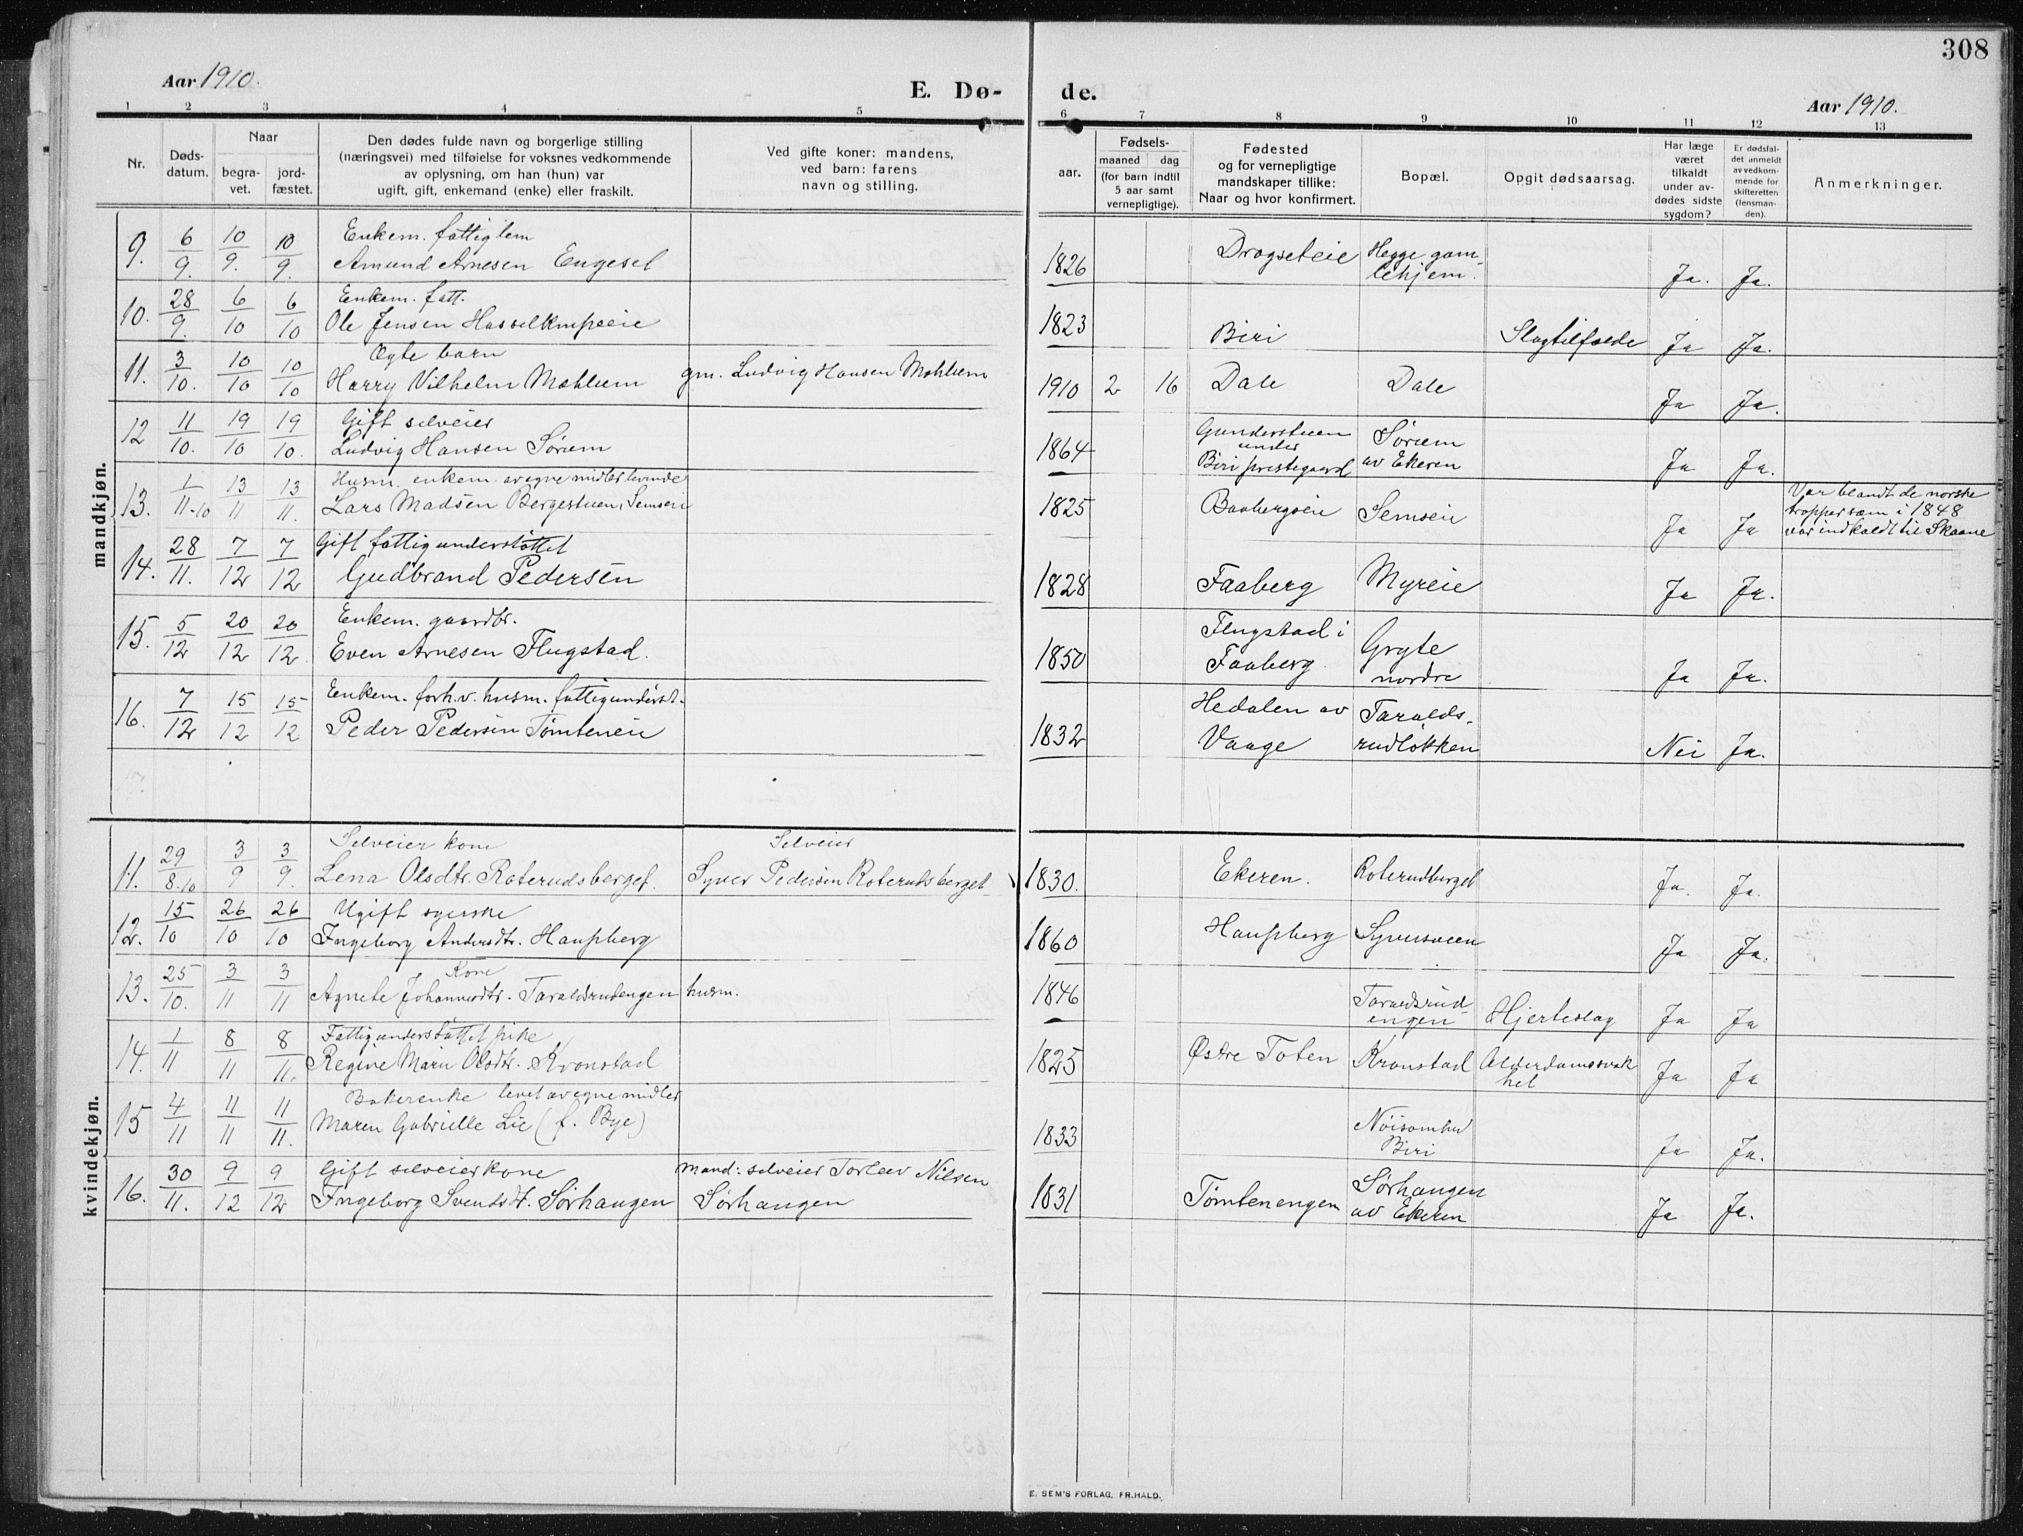 308
Aar 1910.
E. Dø-
de.
Aar 1910.
1 2 3 4 5 6 7 8 9 10 11 12 13
Nr.
Døds-
datum.
Naar
begra-
vet.
jord-
fæstet.
Den dødes fulde navn og borgerlige stilling
(næringsvei) med tilføielse for voksnes vedkommende
av oplysning, om han (hun) var
ugift, gift, enkemand (enke) eller fraskilt.
Ved gifte koner: mandens,
ved barn: farens
navn og stilling.
Fødsels-
aar.
maaned
dag
(for barn indtil
5 aar samt
vernepligtige).
Fødested
og for vernepligtige
mandskaper tillike:
Naar og hvor konfirmert.
Bopæl.
Opgit dødsaarsag.
Har læge
været
tilkaldt
under av-
dødes sidste
sygdom?
Er dødsfal-
det anmeldt
av vedkom-
mende for
skifteretten
(lensman-
den).
Anmerkninger.
mandkjøn.
9. 6/9. 10/9. 10/9. Enkem. fattiglem
Amund Arnesen Engesel
1826 Drogseteie Hegge gam-
lehjem. Ja. Ja.
10. 28/9. 6/10 6/10 Enkem. fatt.
Ole Jensen
1823 Biri Slagtilfælde Ja Ja.
11. 3/10. 10/10 10/10 Ægte barn
Harry Vilhelm Mæhlum gm. Ludvig Hansen Mæhlum
1910 2 16 Dale Dale Ja Ja.
12 11/10. 19/10 19/10. Gift selveier
Ludvig Hansen Sørum
1864 Gunderstuen
under
Biri prestegaard
Sørum
av Ekeren Ja Ja.
13. 1/11-10 13/11 13/11. Husm. enkem. av egne midler levende
Lars Madsen Bergestuen, Semsei
1825 Baabergseie Semseie Ja Ja
Var blandt de norske
tropper som i 1848
var indkaldt til Skaane
14. 28/11. 7/12 7/12 Gift fattigunderstøttet
Gudbrand Pedersen
1828 Faaberg Myreie Ja Ja.
15. 5/12 20/12 20/12. Enkem. gaardbr.
Even Arnesen Flugstad.
1850 Flugstad i
Faaberg.
Gryte
nordre Ja Ja.
16. 7/12 15/12 15/12 Enkem. forh.v. husm. fattigunderst.
Peder Pedersen Tømteneie
1832 Hedalen av
Vaage
Taralds-
rudløkken Nei Ja.
kvindekjøn.
11. 29/8-10 3/9 3/9. Selveier kone
Lena Olsdtr. Roterudsberget.
Selveier
Syver Pedersen Roterudsberget
1830. Ekeren. Roterudberget Ja. Ja.
12. 15/10 26/10 26/10 Ugift syerske
Ingeborg Andersdtr. Haugsberg
1860 Haugsberg Syversveen Ja Ja.
13. 25/10. 3/11 3/11 Kone
Agnete Johannesdtr. Taraldsrudengen husm.
1846 Taraldsrud-
engen Hjerteslag Ja Ja
14. 1/11 8/11 8/11. Fattigunderstøttet pike
Regine Marie Olsdtr. Kronstad
1825 Østre Toten Kronstad Alderdomssvak
het Ja Ja
15 4/11 11/11 11/11. Bakerenke levet av egne midler
Maren Gabrielle Lie (f. Bye)
1833 Nøisomhed
Biri Ja Ja.
16. 30/11. 9/12 9/12 Gift selveierkone
Ingeborg Svendsdt. Sørhaugen
Mand: selveier Torlev Nilsen
Sørhaugen
1831 Tømtenengen Sørhaugen
av Ekeren Ja Ja.
E. SEM'S FORLAG, FR.HALD.